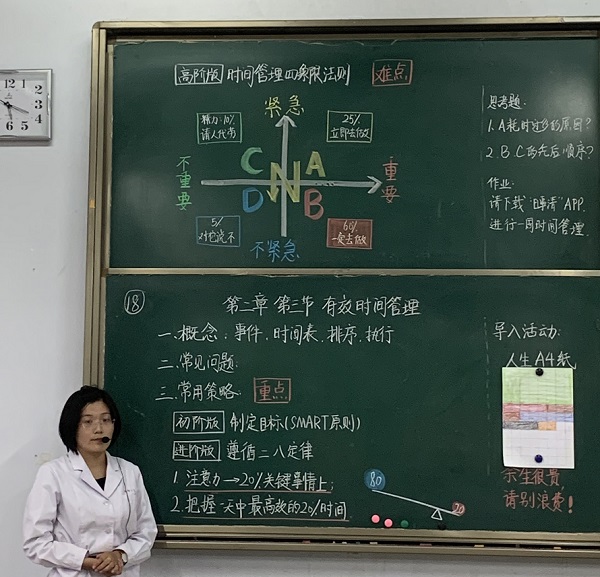 高阶版 时间管理四象限法则 难点
紧急
精力:10%
请人代劳
25%
立即去做
C A
N
D B
不重要
重要
5%
对它说不
60%
一定去做
不紧急
思考题:
1. A耗时过多的原因?
2. B.C的先后顺序?
作业:
请下载"日事清"APP
进行一周时间管理.
18
第二章 第三节 有效时间管理
一.概念:事件、时间表、排序、执行
二.常见问题:
三.常用策略: 重点
初阶版 制定目标(SMART原则)
进阶版 遵循二八定律
1.注意力→20%关键事情上;
2.把握一天中最高效的20%时间
80
20
导入活动:
人生A4纸
请别浪费!
2
3
4
5
6